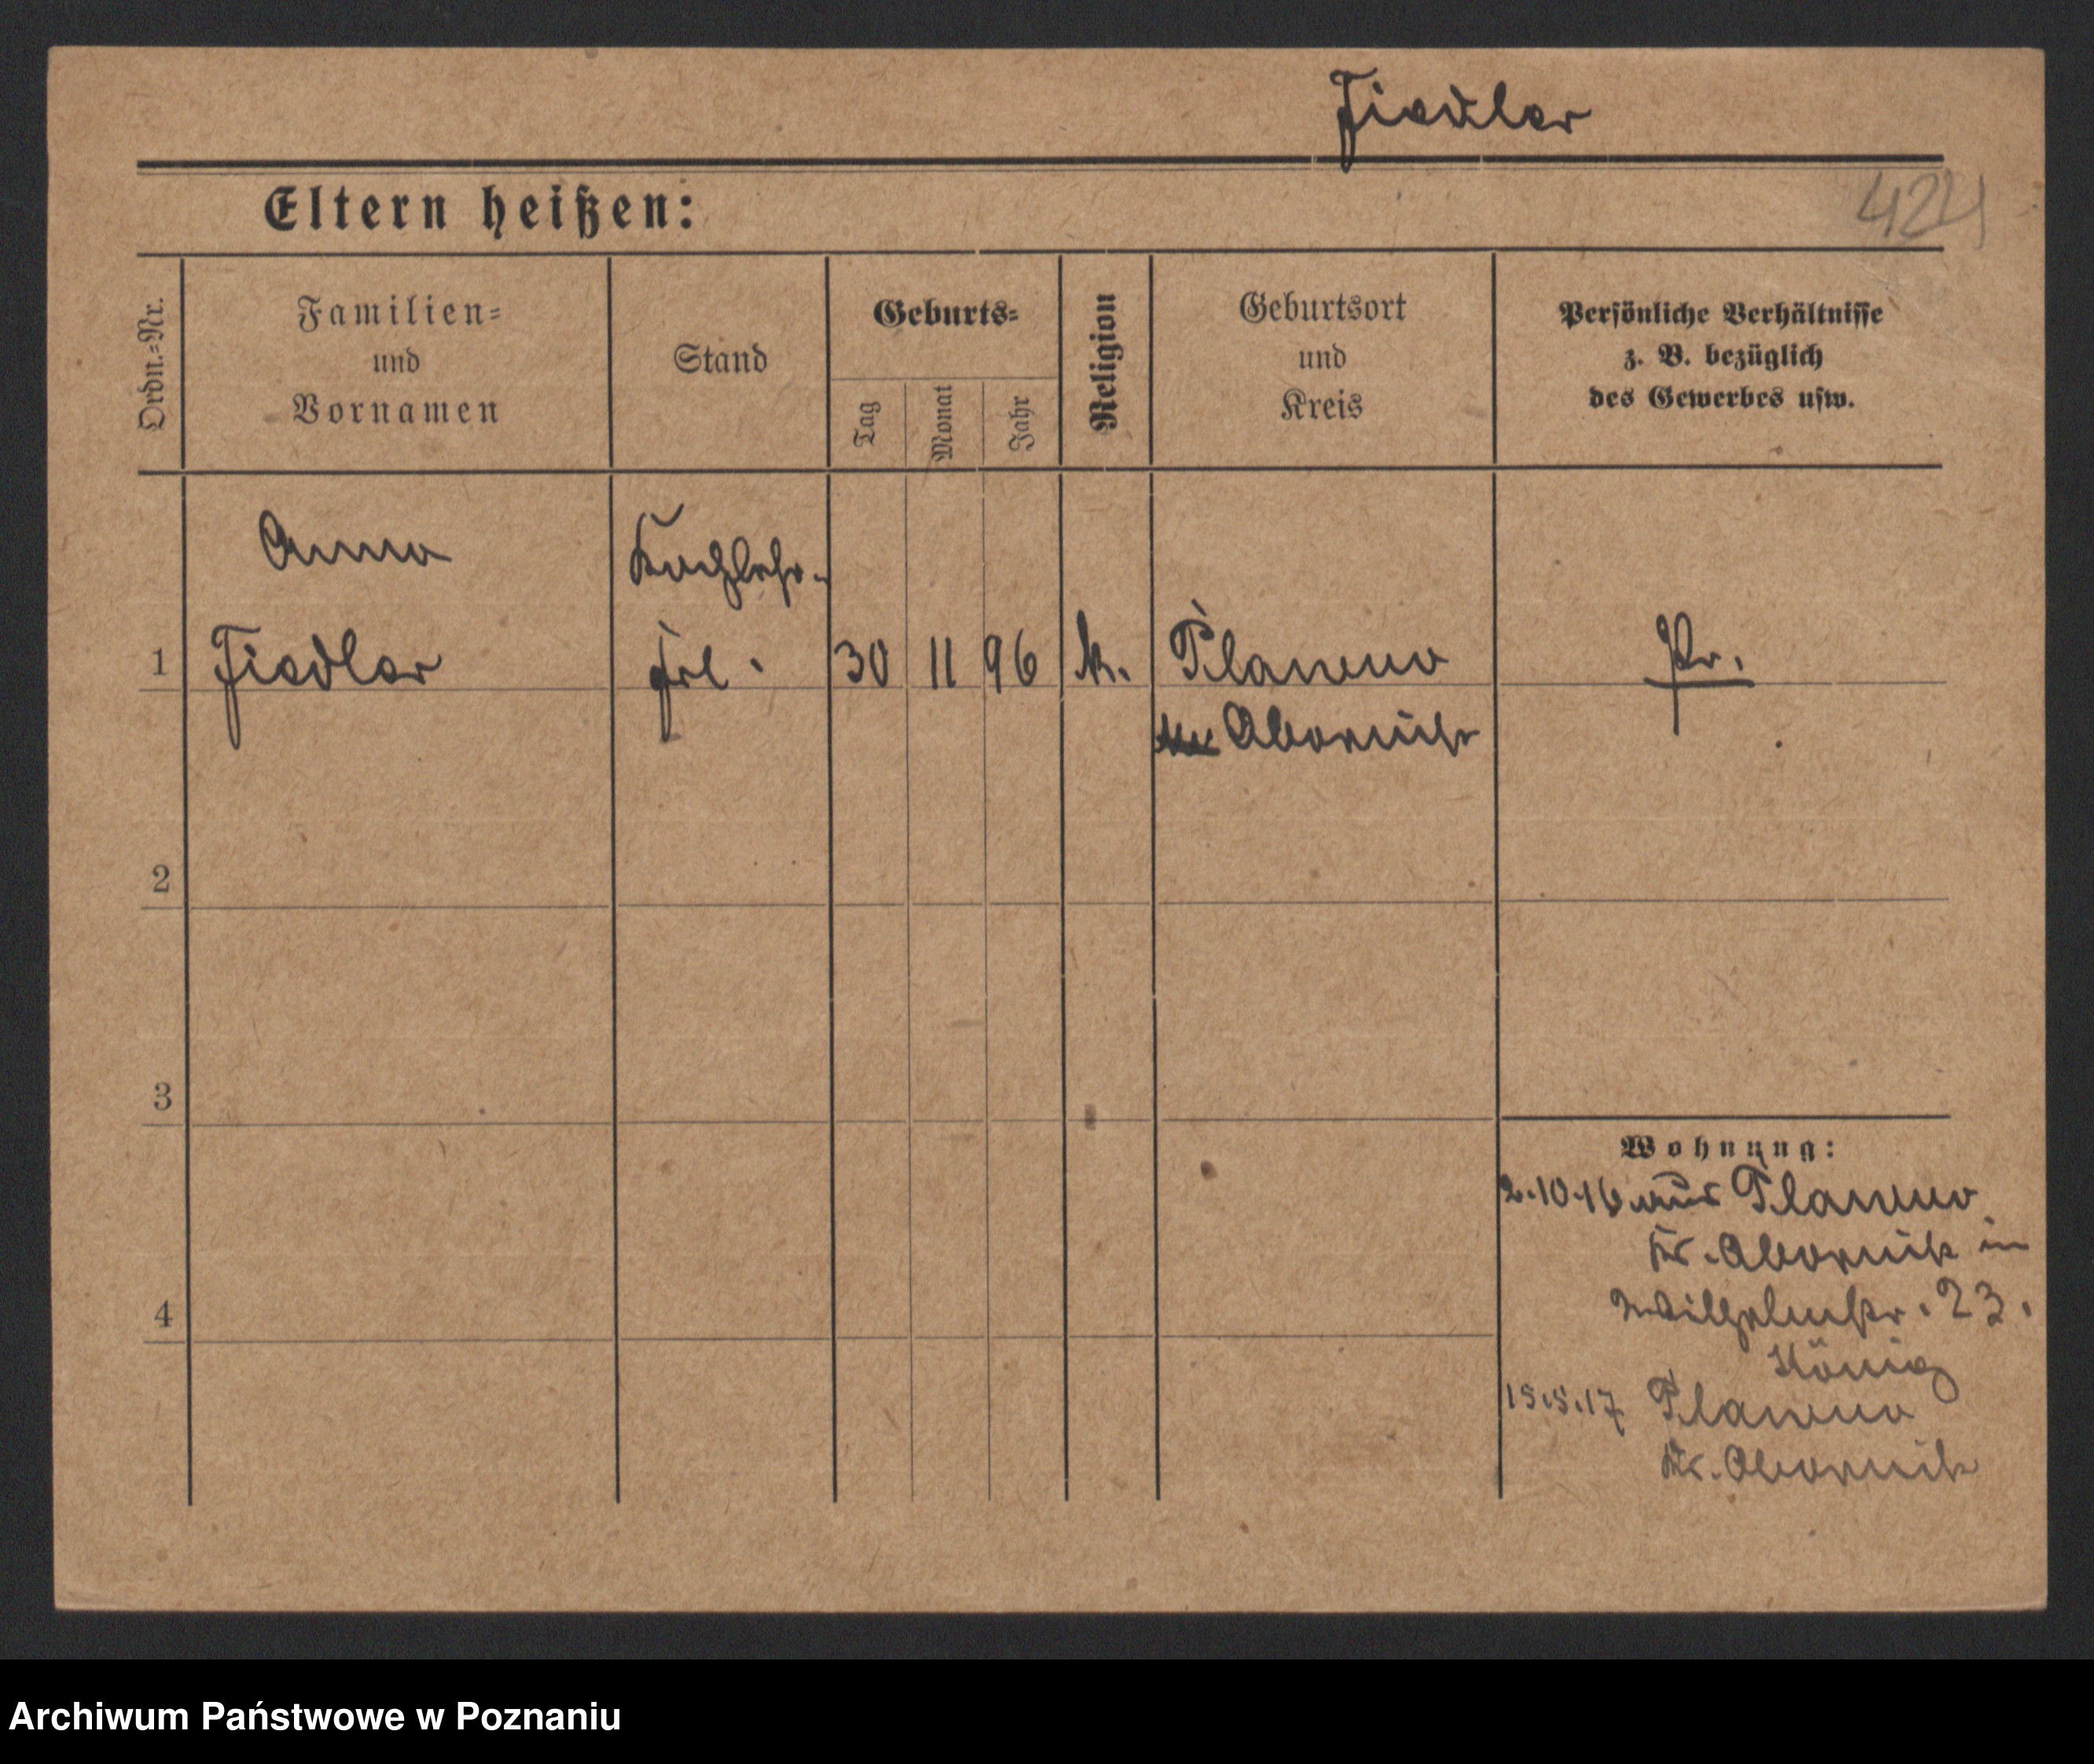 Fiedler
Eltern heißen:
424
Ordn.=Nr.
Familien=
und
Vornamen
Stand
Geburts=
Tag
Monat
Jahr
Religion
Geburtsort
und
Kreis
Persönliche Verhältnisse
z. B. bezüglich
des Gewerbes usw.
Anna
Fiedler
Kochlehr.
Frl.
1
30
11
96
k.
Plawno
Obornik
Pr.
2
3
4
Wohnung:
2.10.16 aus Plawno
Kr. Obornik in
Wilhelmstr. 23.
König
15.5.17 Plawno
Kr. Obornik
Archiwum Państwowe w Poznaniu